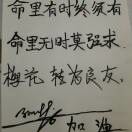 命里有时终须有
命里无时莫强求
梅花 转为良友。
加油